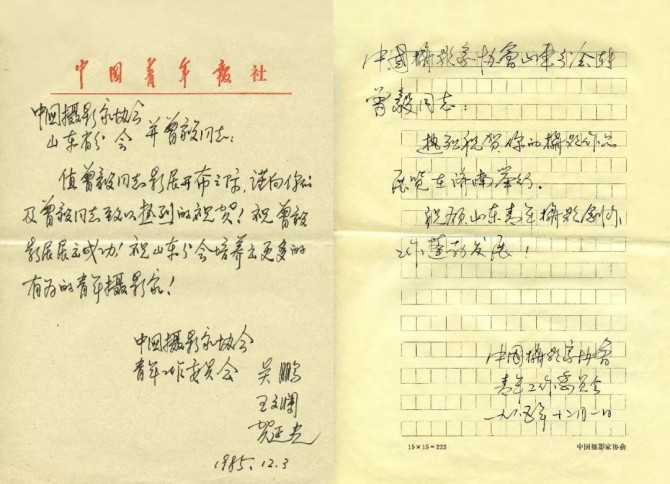 中国青年报社
中国摄影家协会
山东省分会并曾毅同志：
值曾毅同志影展开幕之际，谨向你们
及曾毅同志致以热烈的祝贺！祝曾毅
影展展出成功！祝山东分会培养出更多的
有为的青年摄影家！
中国摄影家协会
青年工作委员会 吴鹏
王文澜
贺延光
1985.12.3
中国摄影家协会山东分会转
曾毅同志：
热烈祝贺你的摄影作品
展览在济南举行。
祝愿山东青年摄影创作
工作蓬勃发展！
中国摄影家协会
青年工作委员会
一九八五年十二月一日
15×15=225
中国摄影家协会